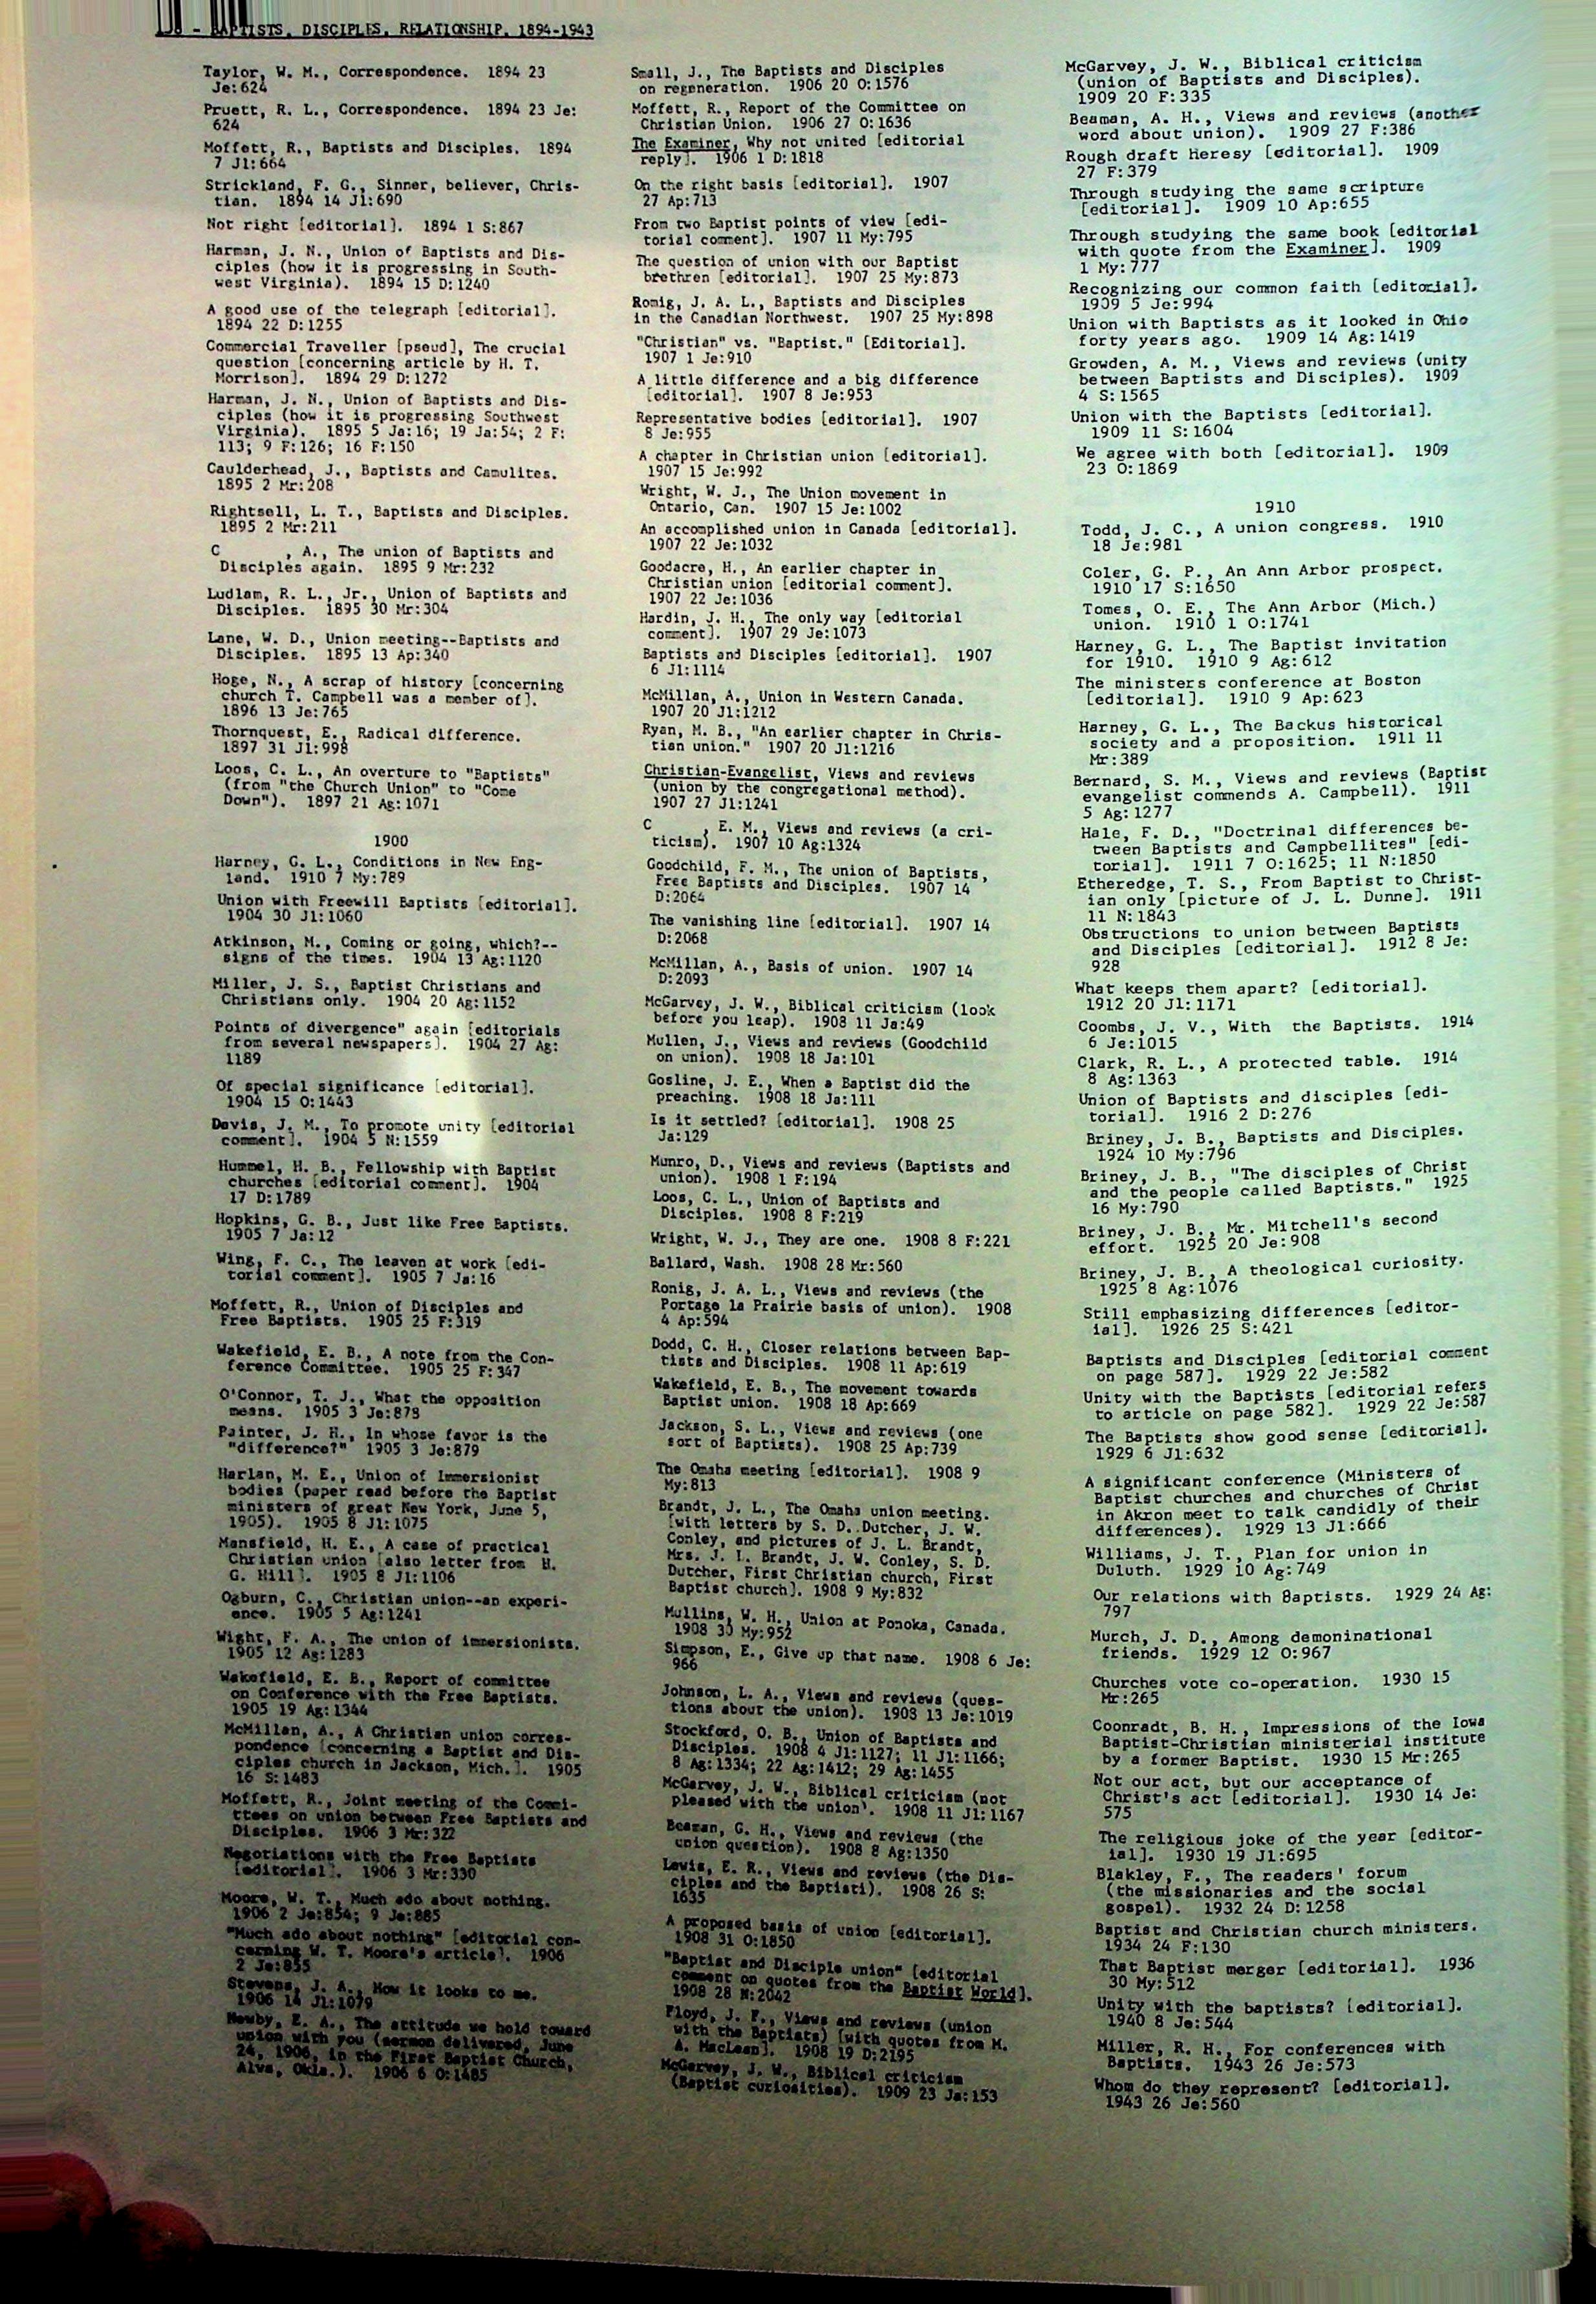 - BAPTISTS, DISCIPLES, RELATIONSHIP, 1894-1943
Taylor, W. M., Correspondence. 1894 23
Je:624
Pruett, R. L., Correspondence. 1894 23 Je:
624
Moffett, R., Baptists and Disciples. 1894
7 Jl:664
Strickland, F. G., Sinner, believer, Chris-
tian. 1894 14 Jl:690
Not right [editorial]. 1894 1 S:867
Harman, J. N., Union of Baptists and Dis-
ciples (how it is progressing in South-
west Virginia). 1894 15 D:1240
A good use of the telegraph [editorial].
1894 22 D:1255
Commercial Traveller [pseud], The crucial
question [concerning article by H. T.
Morrison]. 1894 29 D:1272
Harman, J. N., Union of Baptists and Dis-
ciples (how it is progressing Southwest
Virginia). 1895 5 Ja:16; 19 Ja:54; 2 F:
113; 9 F:126; 16 F:150
Caulderhead, J., Baptists and Camulites.
1895 2 Mr:208
Rightsell, L. T., Baptists and Disciples.
1895 2 Mr:211
C , A., The union of Baptists and
Disciples again. 1895 9 Mr:232
Ludlam, R. L., Jr., Union of Baptists and
Disciples. 1895 30 Mr:304
Lane, W. D., Union meeting--Baptists and
Disciples. 1895 13 Ap:340
Hoge, N., A scrap of history [concerning
church T. Campbell was a member of].
1896 13 Je:765
Thornquest, E., Radical difference.
1897 31 Jl:998
Loos, C. L., An overture to "Baptists"
(from "the Church Union" to "Come
Down"). 1897 21 Ag:1071
1900
Harney, G. L., Conditions in New Eng-
land. 1910 7 My:789
Union with Freewill Baptists [editorial].
1904 30 Jl:1060
Atkinson, M., Coming or going, which?--
signs of the times. 1904 13 Ag:1120
Miller, J. S., Baptist Christians and
Christians only. 1904 20 Ag:1152
Points of divergence" again [editorials
from several newspapers]. 1904 27 Ag:
1189
Of special significance [editorial].
1904 15 O:1443
Davis, J. M., To promote unity [editorial
comment]. 1904 5 N:1559
Hummel, H. B., Fellowship with Baptist
churches [editorial comment]. 1904
17 D:1789
Hopkins, G. B., Just like Free Baptists.
1905 7 Ja:12
Wing, F. C., The leaven at work [edi-
torial comment]. 1905 7 Ja:16
Moffett, R., Union of Disciples and
Free Baptists. 1905 25 F:319
Wakefield, E. B., A note from the Con-
ference Committee. 1905 25 F:347
O'Connor, T. J., What the opposition
means. 1905 3 Je:878
Painter, J. H., In whose favor is the
"difference?" 1905 3 Je:879
Harlan, M. E., Union of Immersionist
bodies (paper read before the Baptist
ministers of great New York, June 5,
1905). 1905 8 Jl:1075
Mansfield, H. E., A case of practical
Christian union [also letter from H.
G. Hill]. 1905 8 Jl:1106
Ogburn, C., Christian union--an experi-
ence. 1905 5 Ag:1241
Wight, F. A., The union of immersionists.
1905 12 Ag:1283
Wakefield, E. B., Report of committee
on Conference with the Free Baptists.
1905 19 Ag:1344
McMillan, A., A Christian union corres-
pondence [concerning a Baptist and Dis-
ciples church in Jackson, Mich.]. 1905
16 S:1483
Moffett, R., Joint meeting of the Commi-
ttees on union between Free Baptists and
Disciples. 1906 3 Mr:322
Negotiations with the Free Baptists
[editorial]. 1906 3 Mr:330
Moore, W. T., Much ado about nothing.
1906 2 Je:854; 9 Je:885
"Much ado about nothing" [editorial con-
cerning W. T. Moore's article]. 1906
2 Je:855
Stevens, J. A., How it looks to me.
1906 14 Jl:1079
Newby, E. A., The attitude we hold toward
union with you (sermon delivered, June
24, 1906, in the First Baptist Church,
Alva, Okla.). 1906 6 O:1485
Small, J., The Baptists and Disciples
on regeneration. 1906 20 O:1576
Moffett, R., Report of the Committee on
Christian Union. 1906 27 O:1636
The Examiner, Why not united [editorial
reply]. 1906 1 D:1818
On the right basis [editorial]. 1907
27 Ap:713
From two Baptist points of view [edi-
torial comment]. 1907 11 My:795
The question of union with our Baptist
brethren [editorial]. 1907 25 My:873
Romig, J. A. L., Baptists and Disciples
in the Canadian Northwest. 1907 25 My:898
"Christian" vs. "Baptist." [Editorial].
1907 1 Je:910
A little difference and a big difference
[editorial]. 1907 8 Je:953
Representative bodies [editorial]. 1907
8 Je:955
A chapter in Christian union [editorial].
1907 15 Je:992
Wright, W. J., The Union movement in
Ontario, Can. 1907 15 Je:1002
An accomplished union in Canada [editorial].
1907 22 Je:1032
Goodacre, H., An earlier chapter in
Christian union [editorial comment].
1907 22 Je:1036
Hardin, J. H., The only way [editorial
comment]. 1907 29 Je:1073
Baptists and Disciples [editorial]. 1907
6 Jl:1114
McMillan, A., Union in Western Canada.
1907 20 Jl:1212
Ryan, M. B., "An earlier chapter in Chris-
tian union." 1907 20 Jl:1216
Christian-Evangelist, Views and reviews
(union by the congregational method).
1907 27 Jl:1241
C , E. M., Views and reviews (a cri-
ticism). 1907 10 Ag:1324
Goodchild, F. M., The union of Baptists,
Free Baptists and Disciples. 1907 14
D:2064
The vanishing line [editorial]. 1907 14
D:2068
McMillan, A., Basis of union. 1907 14
D:2093
McGarvey, J. W., Biblical criticism (look
before you leap). 1908 11 Ja:49
Mullen, J., Views and reviews (Goodchild
on union). 1908 18 Ja:101
Gosline, J. E., When a Baptist did the
preaching. 1908 18 Ja:111
Is it settled? [editorial]. 1908 25
Ja:129
Munro, D., Views and reviews (Baptists and
union). 1908 1 F:194
Loos, C. L., Union of Baptists and
Disciples. 1908 8 F:219
Wright, W. J., They are one. 1908 8 F:221
Ballard, Wash. 1908 28 Mr:560
Ronig, J. A. L., Views and reviews (the
Portage la Prairie basis of union). 1908
4 Ap:594
Dodd, C. H., Closer relations between Bap-
tists and Disciples. 1908 11 Ap:619
Wakefield, E. B., The movement towards
Baptist union. 1908 18 Ap:669
Jackson, S. L., Views and reviews (one
sort of Baptists). 1908 25 Ap:739
The Omaha meeting [editorial]. 1908 9
My:813
Brandt, J. L., The Omaha union meeting.
[with letters by S. D. Dutcher, J. W.
Conley, and pictures of J. L. Brandt,
Mrs. J. L. Brandt, J. W. Conley, S. D.
Dutcher, First Christian church, First
Baptist church]. 1908 9 My:832
Mullins, W. H., Union at Ponoka, Canada.
1908 30 My:952
Simpson, E., Give up that name. 1908 6 Je:
966
Johnson, L. A., Views and reviews (ques-
tions about the union). 1908 13 Je:1019
Stockford, O. B., Union of Baptists and
Disciples. 1908 4 Jl:1127; 11 Jl:1166;
8 Ag:1334; 22 Ag:1412; 29 Ag:1455
McGarvey, J. W., Biblical criticism (not
pleased with the union). 1908 11 Jl:1167
Beaman, G. H., Views and reviews (the
union question). 1908 8 Ag:1350
Lewis, E. R., Views and reviews (the Dis-
ciples and the Baptisti). 1908 26 S:
1635
A proposed basis of union [editorial].
1908 31 O:1850
"Baptist and Disciple union" [editorial
comment on quotes from the Baptist World].
1908 28 N:2042
Floyd, J. F., Views and reviews (union
with the Baptists) [with quotes from M.
A. MacLean]. 1908 19 D:2195
McGarvey, J. W., Biblical criticism
(Baptist curiosities). 1909 23 Ja:153
McGarvey, J. W., Biblical criticism
(union of Baptists and Disciples).
1909 20 F:335
Beaman, A. H., Views and reviews (another
word about union). 1909 27 F:386
Rough draft Heresy [editorial]. 1909
27 F:379
Through studying the same scripture
[editorial]. 1909 10 Ap:655
Through studying the same book [editorial
with quote from the Examiner]. 1909
1 My:777
Recognizing our common faith [editorial].
1909 5 Je:994
Union with Baptists as it looked in Ohio
forty years ago. 1909 14 Ag:1419
Growden, A. M., Views and reviews (unity
between Baptists and Disciples). 1909
4 S:1565
Union with the Baptists [editorial].
1909 11 S:1604
We agree with both [editorial]. 1909
23 O:1869
1910
Todd, J. C., A union congress. 1910
18 Je:981
Coler, G. P., An Ann Arbor prospect.
1910 17 S:1650
Tomes, O. E., The Ann Arbor (Mich.)
union. 1910 1 O:1741
Harney, G. L., The Baptist invitation
for 1910. 1910 9 Ag:612
The ministers conference at Boston
[editorial]. 1910 9 Ap:623
Harney, G. L., The Backus historical
society and a proposition. 1911 11
Mr:389
Bernard, S. M., Views and reviews (Baptist
evangelist commends A. Campbell). 1911
5 Ag:1277
Hale, F. D., "Doctrinal differences be-
tween Baptists and Campbellites" [edi-
torial]. 1911 7 O:1625; 11 N:1850
Etheredge, T. S., From Baptist to Christ-
ian only [picture of J. L. Dunne]. 1911
11 N:1843
Obstructions to union between Baptists
and Disciples [editorial]. 1912 8 Je:
928
What keeps them apart? [editorial].
1912 20 Jl:1171
Coombs, J. V., With the Baptists. 1914
6 Je:1015
Clark, R. L., A protected table. 1914
8 Ag:1363
Union of Baptists and disciples [edi-
torial]. 1916 2 D:276
Briney, J. B., Baptists and Disciples.
1924 10 My:796
Briney, J. B., "The disciples of Christ
and the people called Baptists." 1925
16 My:790
Briney, J. B., Mr. Mitchell's second
effort. 1925 20 Je:908
Briney, J. B., A theological curiosity.
1925 8 Ag:1076
Still emphasizing differences [editor-
ial]. 1926 25 S:421
Baptists and Disciples [editorial comment
on page 587]. 1929 22 Je:582
Unity with the Baptists [editorial refers
to article on page 582]. 1929 22 Je:587
The Baptists show good sense [editorial].
1929 6 Jl:632
A significant conference (Ministers of
Baptist churches and churches of Christ
in Akron meet to talk candidly of their
differences). 1929 13 Jl:666
Williams, J. T., Plan for union in
Duluth. 1929 10 Ag:749
Our relations with Baptists. 1929 24 Ag:
797
Murch, J. D., Among demoninational
friends. 1929 12 O:967
Churches vote co-operation. 1930 15
Mr:265
Coonradt, B. H., Impressions of the Iowa
Baptist-Christian ministerial institute
by a former Baptist. 1930 15 Mr:265
Not our act, but our acceptance of
Christ's act [editorial]. 1930 14 Je:
575
The religious joke of the year [editor-
ial]. 1930 19 Jl:695
Blakley, F., The readers' forum
(the missionaries and the social
gospel). 1932 24 D:1258
Baptist and Christian church ministers.
1934 24 F:130
That Baptist merger [editorial]. 1936
30 My:512
Unity with the baptists? [editorial].
1940 8 Je:544
Miller, R. H., For conferences with
Baptists. 1943 26 Je:573
Whom do they represent? [editorial].
1943 26 Je:560